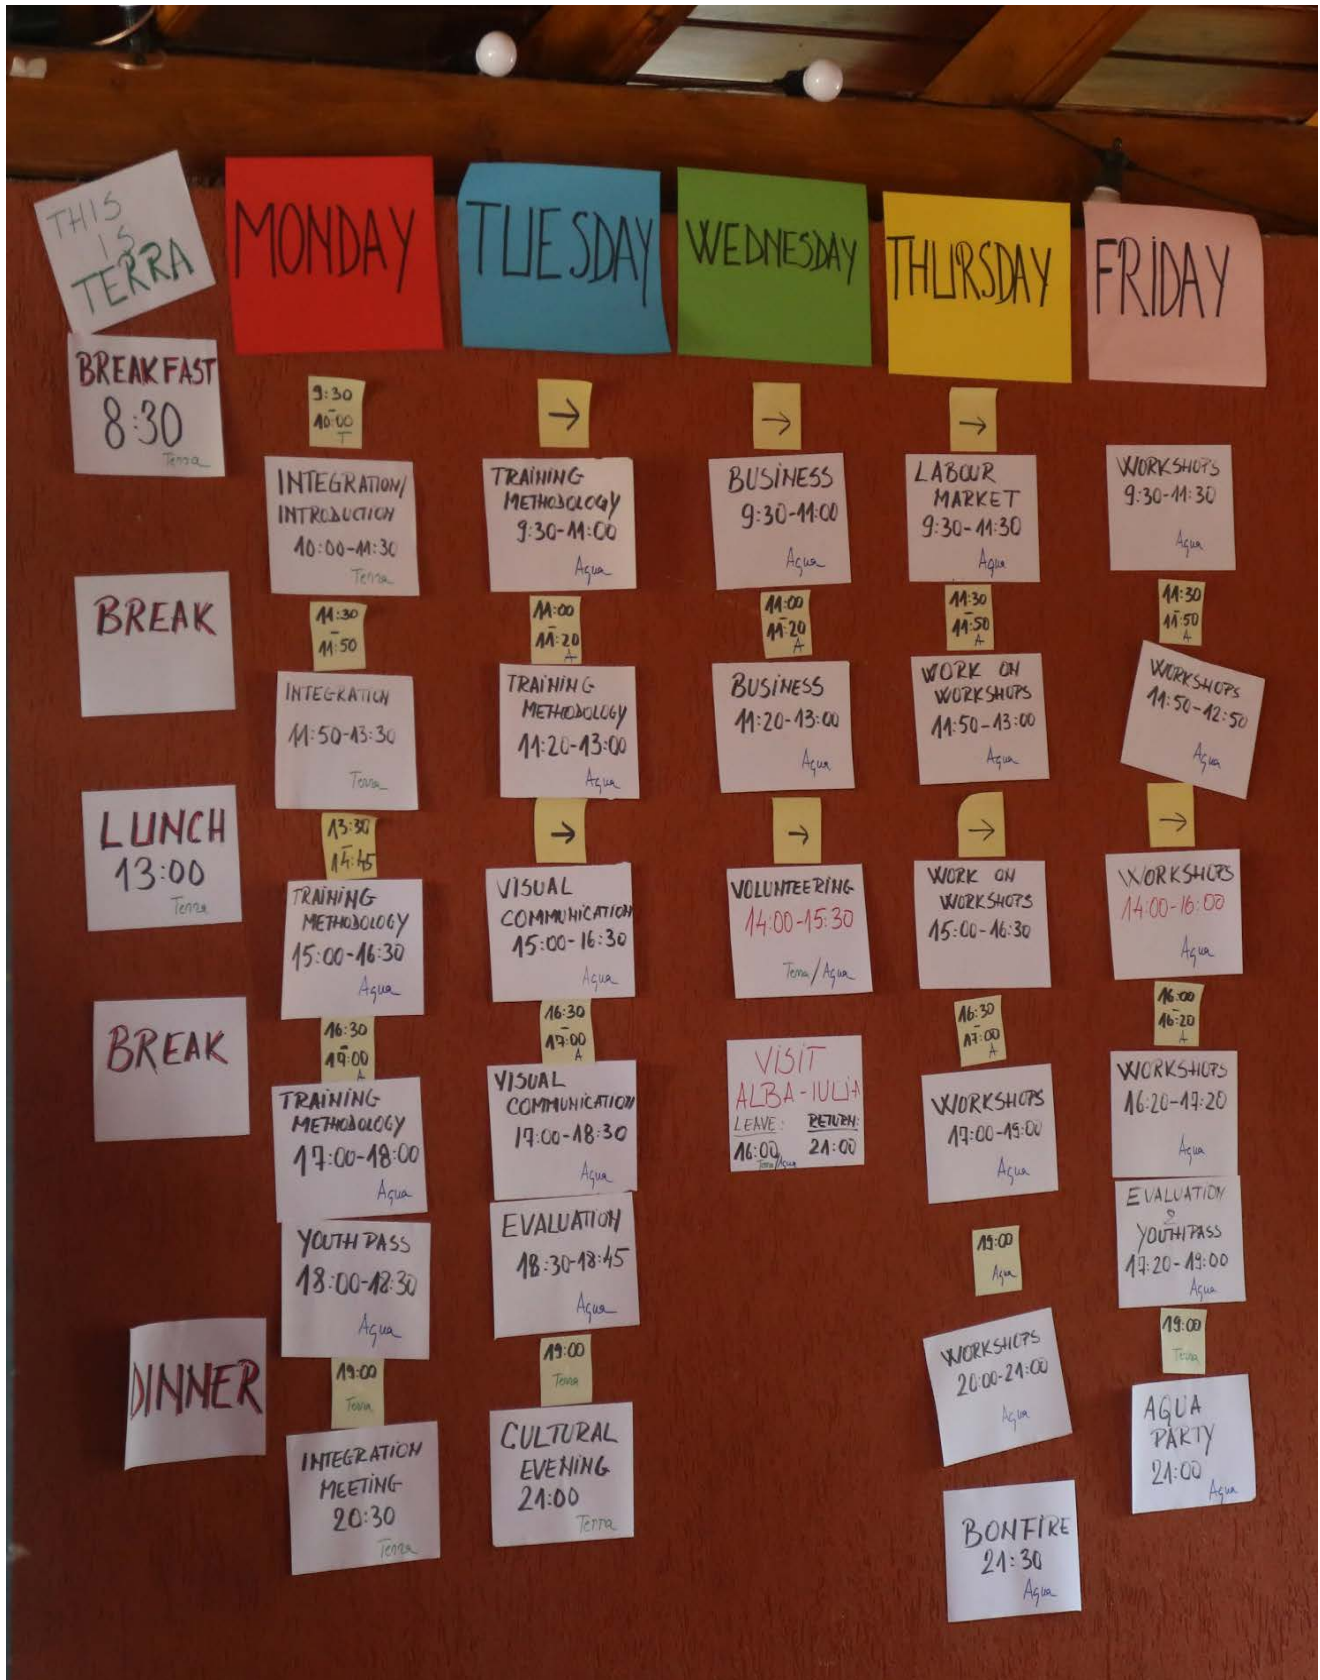 THIS
IS
TERRA
BREAKFAST
8:30
Terra
BREAK
LUNCH
13:00
Terra
BREAK
DINNER
MONDAY
9:30
-
10:00
T
INTEGRATION/
INTRODUCTION
10:00-11:30
Terra
11:30
-
11:50
INTEGRATION
11:50-13:30
Terra
13:30
-
14:45
TRAINING
METHODOLOGY
15:00-16:30
Aqua
16:30
-
17:00
A
TRAINING
METHODOLOGY
17:00-18:00
Aqua
YOUTHPASS
18:00-18:30
Aqua
19:00
Terra
INTEGRATION
MEETING
20:30
Terra
TUESDAY
→
TRAINING
METHODOLOGY
9:30-11:00
Aqua
11:00
-
11:20
A
TRAINING
METHODOLOGY
11:20-13:00
Aqua
→
VISUAL
COMMUNICATION
15:00-16:30
Aqua
16:30
-
17:00
A
VISUAL
COMMUNICATION
17:00-18:30
Aqua
EVALUATION
18:30-18:45
Aqua
19:00
Terra
CULTURAL
EVENING
21:00
Terra
WEDNESDAY
→
BUSINESS
9:30-11:00
Aqua
11:00
-
11:20
A
BUSINESS
11:20-13:00
Aqua
→
VOLUNTEERING
14:00-15:30
Terra/Aqua
VISIT
ALBA-IULIA
LEAVE: RETURN:
16:00 21:00
Terra/Aqua
THURSDAY
→
LABOUR
MARKET
9:30-11:30
Aqua
11:30
-
11:50
A
WORK ON
WORKSHOPS
11:50-13:00
Aqua
→
WORK ON
WORKSHOPS
15:00-16:30
16:30
-
17:00
A
WORKSHOPS
17:00-19:00
Aqua
19:00
Aqua
WORKSHOPS
20:00-21:00
Aqua
BONFIRE
21:30
Aqua
FRIDAY
WORKSHOPS
9:30-11:30
Aqua
11:30
-
11:50
A
WORKSHOPS
11:50-12:50
Aqua
→
WORKSHOPS
14:00-16:00
Aqua
16:00
-
16:20
A
WORKSHOPS
16:20-17:20
Aqua
EVALUATION
&
YOUTHPASS
17:20-19:00
Aqua
19:00
Terra
AQUA
PARTY
21:00
Aqua